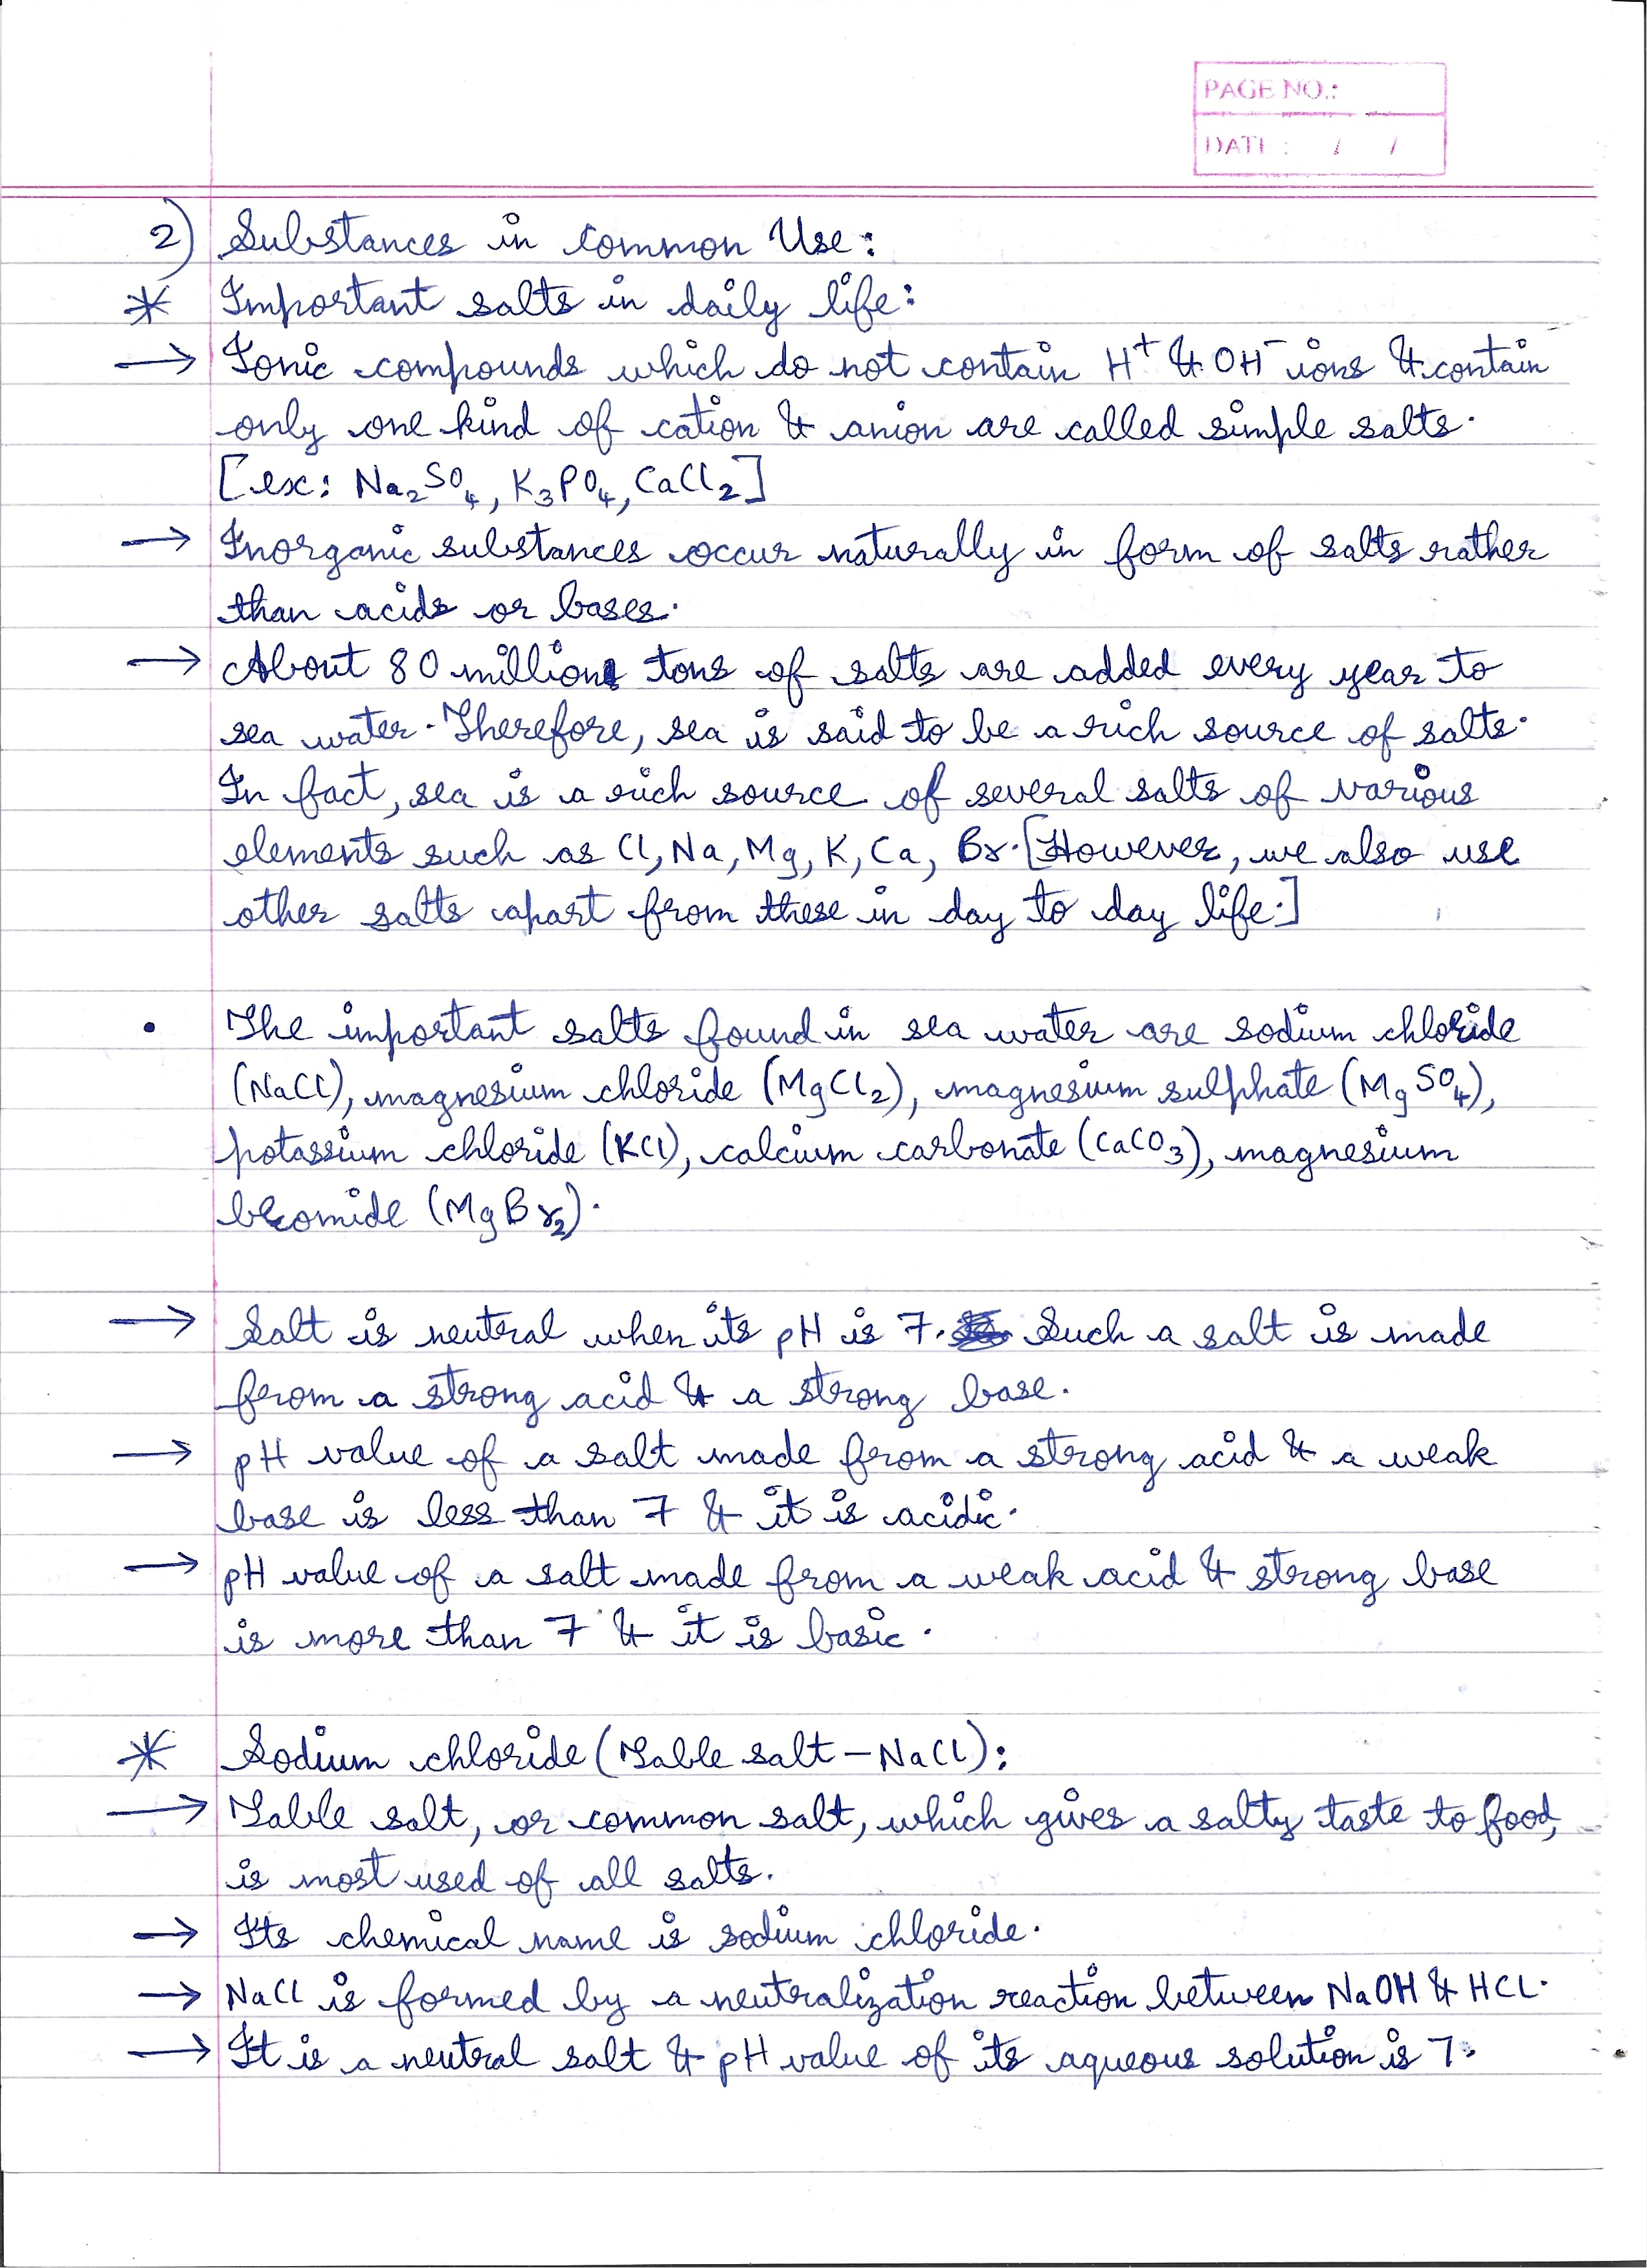 PAGE NO.:
DATE : / /
2) Substances in Common Use:
* Important salts in daily life:
→ Ionic compounds which do not contain H⁺ & OH⁻ ions & contain
only one kind of cation & anion are called simple salts.
[ex: Na₂SO₄, K₃PO₄, CaCl₂]
→ Inorganic substances occur naturally in form of salts rather
than acids or bases.
→ About 80 million tons of salts are added every year to
sea water. Therefore, sea is said to be a rich source of salts.
In fact, sea is a rich source of several salts of various
elements such as Cl, Na, Mg, K, Ca, Br. [However, we also use
other salts apart from these in day to day life.]
• The important salts found in sea water are sodium chloride
(NaCl), magnesium chloride (MgCl₂), magnesium sulphate (MgSO₄),
potassium chloride (KCl), calcium carbonate (CaCO₃), magnesium
bromide (MgBr₂).
→ Salt is neutral when its pH is 7. Such a salt is made
from a strong acid & a strong base.
→ pH value of a salt made from a strong acid & a weak
base is less than 7 & it is acidic.
→ pH value of a salt made from a weak acid & strong base
is more than 7 & it is basic.
* Sodium chloride (Table salt – NaCl):
→ Table salt, or common salt, which gives a salty taste to food,
is most used of all salts.
→ Its chemical name is sodium chloride.
→ NaCl is formed by a neutralization reaction between NaOH & HCl.
→ It is a neutral salt & pH value of its aqueous solution is 7.